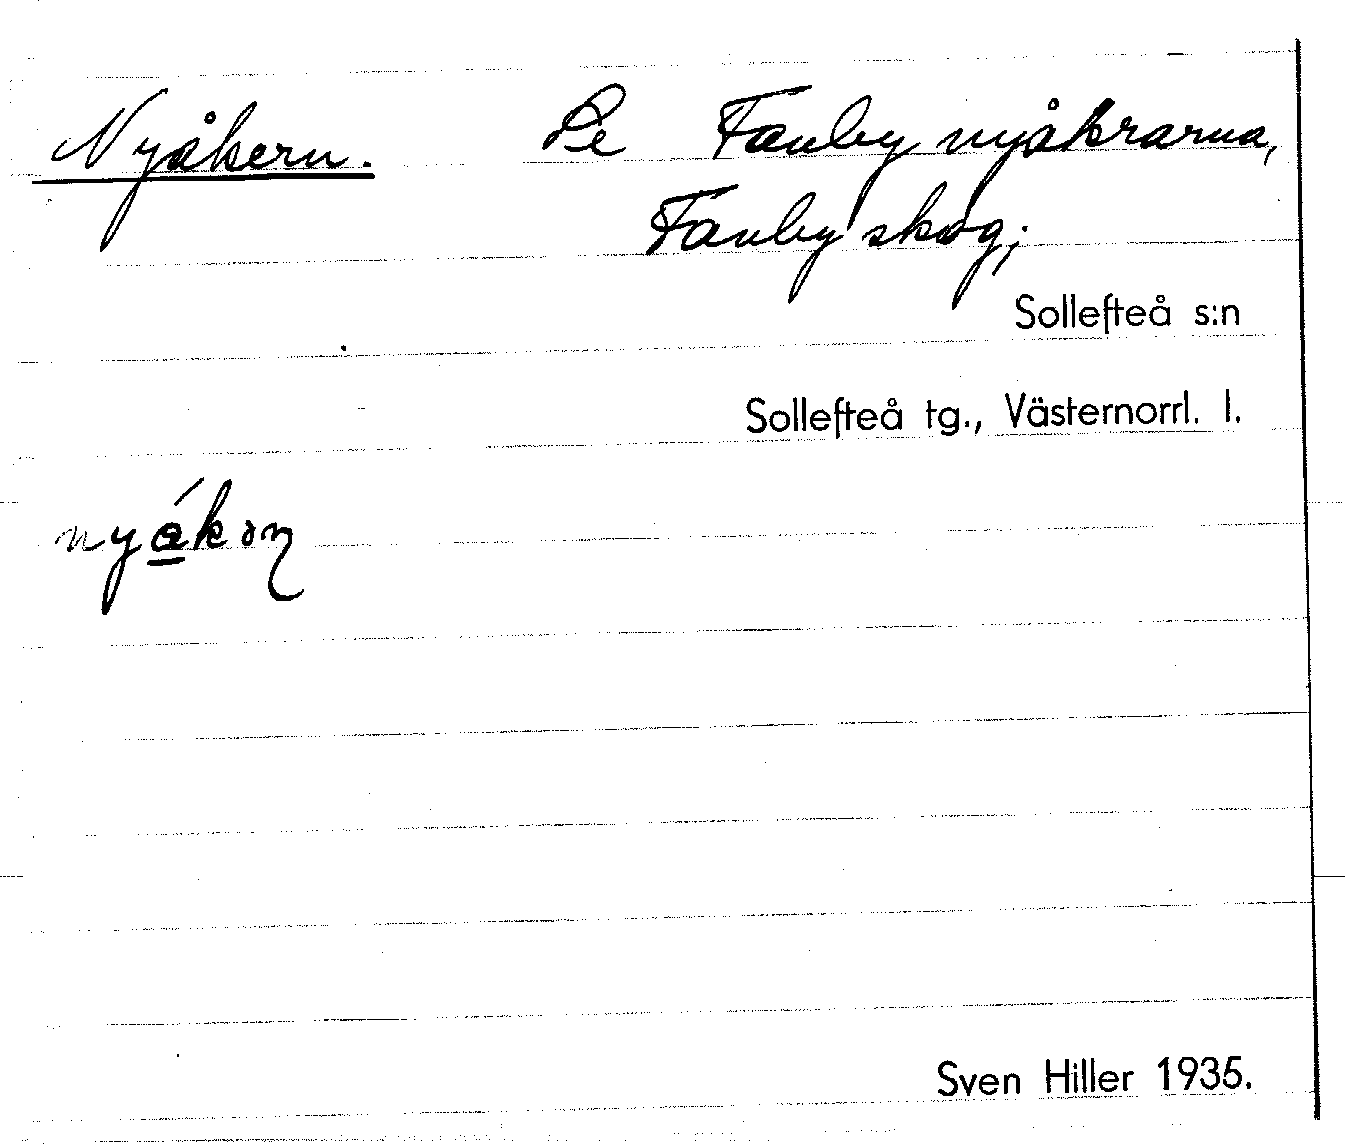 Nyåkern. Se Fanby nyåkrarna,
Fanby skog;
Sollefteå s:n
Sollefteå tg., Västernorrl. l.
Sven Hiller 1935.